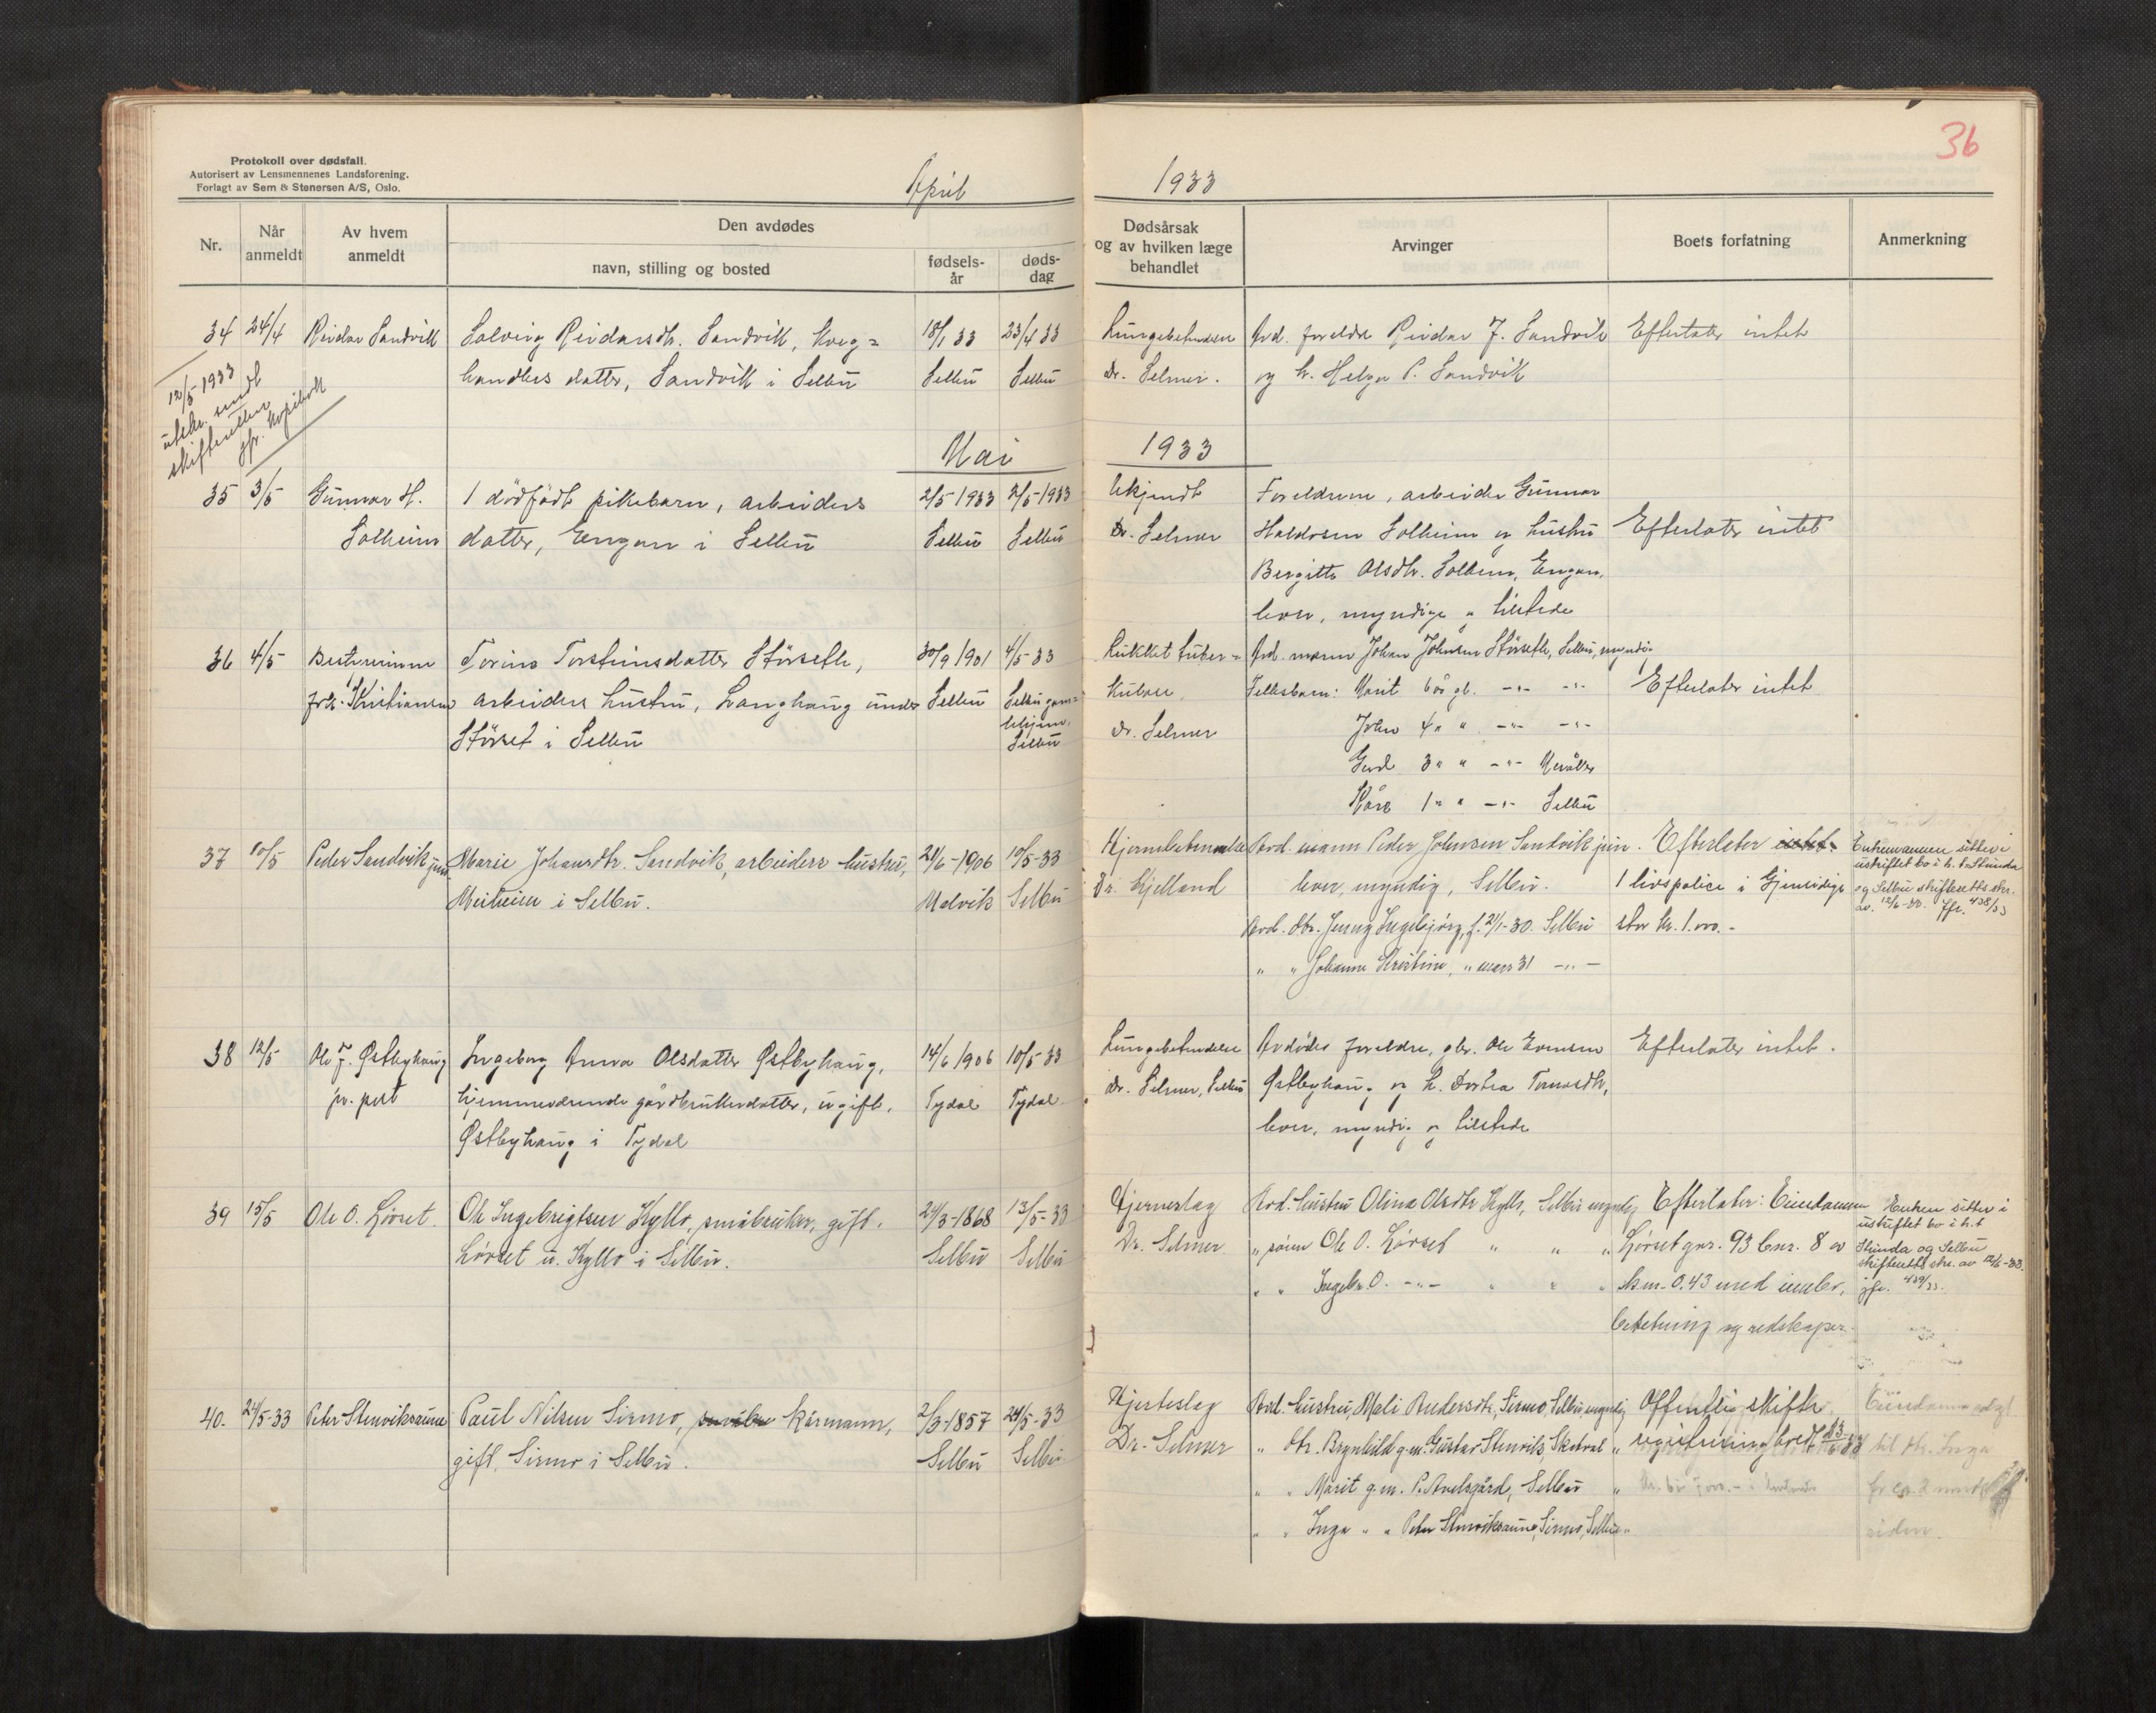 36
Protokoll over dødsfall.
Autorisert av Lensmennenes Landsforening.
Forlagt av Sem & Stenersen A/S, Oslo.
April 1933
Nr.
Når anmeldt
Av hvem anmeldt
Den avdødes
navn, stilling og bosted
fødsels-år
døds-dag
Dødsårsak og av hvilken læge behandlet
Arvinger
Boets forfatning
Anmerkning
34 24/4 Reidar Sandvik Solveig Reidarsdtr. Sandvik, kveg= 18/1 33 23/4 33 Lungebetendelse Avd. foreldre Reidar J. Sandvik Efterlater intet
handlers datter, Sandvik i Selbu Selbu Selbu Dr. Selmer. og h. Helga P. Sandvik
12/5 1933
utskr. sendt
skifteretten
jfr. kopibok
Mai 1933
35 3/5 Gunnar H. 1 dødfødt pikebarn, arbeiders 2/5 1933 2/5-1933 Ukjendt Foreldrene, arbeider Gunnar
Solheim datter, Engan i Selbu Selbu Selbu Dr. Selmer Haldosen Solheim og hustru Efterlater intet
Bergitte Olsdtr. Solheim, Engan,
lever, myndige og tilstede
36 4/5 Bestyrerinne Torine Torsteinsdatter Størseth, 30/9 1901 4/5-33 Lukket tuber= Avd. mann Johan Johnsen Størseth, Selbu, myndig
frk. Kristiansen arbeiders hustru, Langhaug under Selbu Selbu gam= kulose. Fellesbarn: Marit 6 år gl. -"- -"- Efterlater intet
Størset i Selbu lehjem, Selbu Dr. Selmer John 4 " " -"- -"-
Gerd 3 " " -"- Meråker
Kåre 1 " " -"- Selbu
37 10/5 Peder Sandvik jun. Marie Johansdtr. Sandvik, arbeiders hustru, 21/6-1906 10/5-33 Hjernebetendelse Avd. mann Peder Johnsen Sandvik jun. Efterlater intet. Enkemannen sitter i
Meiteien i Selbu. Malvik Selbu Dr. Kjelland lever, myndig, Selbu. 1 livspolice i Gjensidige uskiftet bo i h. t. Strinda
Avd. dtr. Jenny Ingebjørg, f. 21/1-30. Selbu stor kr. 1.000.- og Selbu skifteretts skr.
av. 12/6-33. Jfr. 438/33
" " Johanne Kristine, " mars 31 -"-
38 12/5 Ole J. Østbyhaug Ingeborg Anna Olsdatter Østbyhaug, 14/6 1906 10/5-33 Lungebetendelse Avdødes foreldre, gbr. Ole Evensen Efterlater intet.
pr. post hjemmeværende gårdbrukerdatter, ugift, Tydal Tydal Dr. Selmer, Selbu Østbyhaug og h. Dortea Tomasdtr,
Østbyhaug i Tydal lever, myndig og tilstede
39 15/5 Ole O. Lørset. Ole Ingebrigtsen Kyllo, småbruker, gift. 24/3-1868 13/5-33 Hjerneslag Avd. hustru Olina Olsdtr Kyllo, Selbu myndig Efterlater: Eiendommen Enken sitter i
Lørset u. Kyllo i Selbu. Selbu Selbu Dr. Selmer " sønn Ole O. Lørset " " " Lørset gnr. 93 bnr. 8 av uskiftet bo i h. t
" " Ingebr. O. -"- " " " skm. 0.43 med innbo, Strinda og Selbu
skifteretts skr. av 12/6-33.
jfr. 439/33.
besetning og redskaper.
40. 24/5-33 Peter Stenviksaune Paul Nilsen Sirmo, småbr kårmann, 2/3-1857 24/5-33 Hjerteslag Avd. hustru, Mali Andersdtr, Sirmo, Selbu, myndig Offentlig skifte,
gift, Sirmo i Selbu. Selbu Selbu Dr. Selmer " dtr. Brynhild g.m. Gustav Stenvik, Skatval " registrering bred 23/6 33
" " Marit g.m. P. Avelsgård, Selbu "
" " Inga " " Peter Stenviksaune, Sirmo, Selbu "
Eiendommen solgt
til dtr. Inga
for ca 2 mndr
siden.